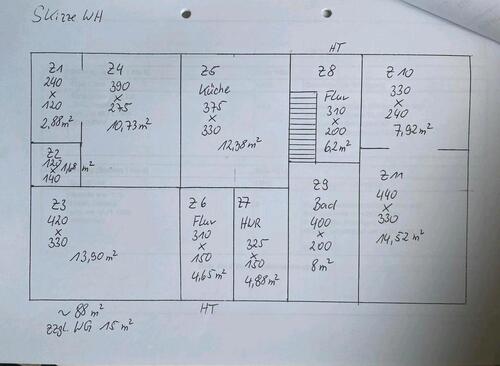 Skizze WH
HT
Z1
240
x
120
2,88m²
Z4
390
x
275
10,73m²
Z5
Küche
375
x
330
12,38m²
Z8
Flur
310
x
200
6,2m²
Z10
330
x
240
7,92m²
Z2
120
x
140
1,68 m²
Z3
420
x
330
13,90m²
Z6
Flur
310
x
150
4,65m²
Z7
HWR
325
x
150
4,88m²
Z9
Bad
400
x
200
8m²
Z11
440
x
330
14,52m²
HT
~ 88m²
zzgl. WG 15 m²